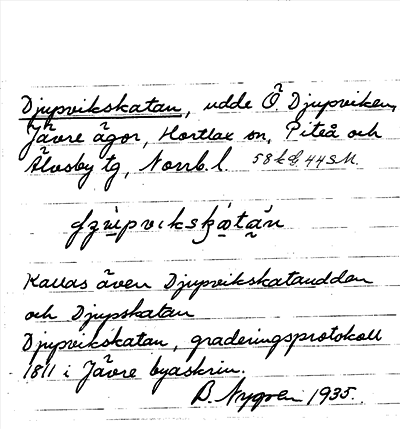 Djupvikskatan, udde Ö. Djupviken,
Jävre ägor, Hortlax sn, Piteå och
Älvsby tg, Norrb. l.
Kallas även Djupvikskatauddan
och Djupskatan
Djupvikskatan, graderingsprotokoll
1811 i Jävre byaskrin.
B. Nygren 1935.